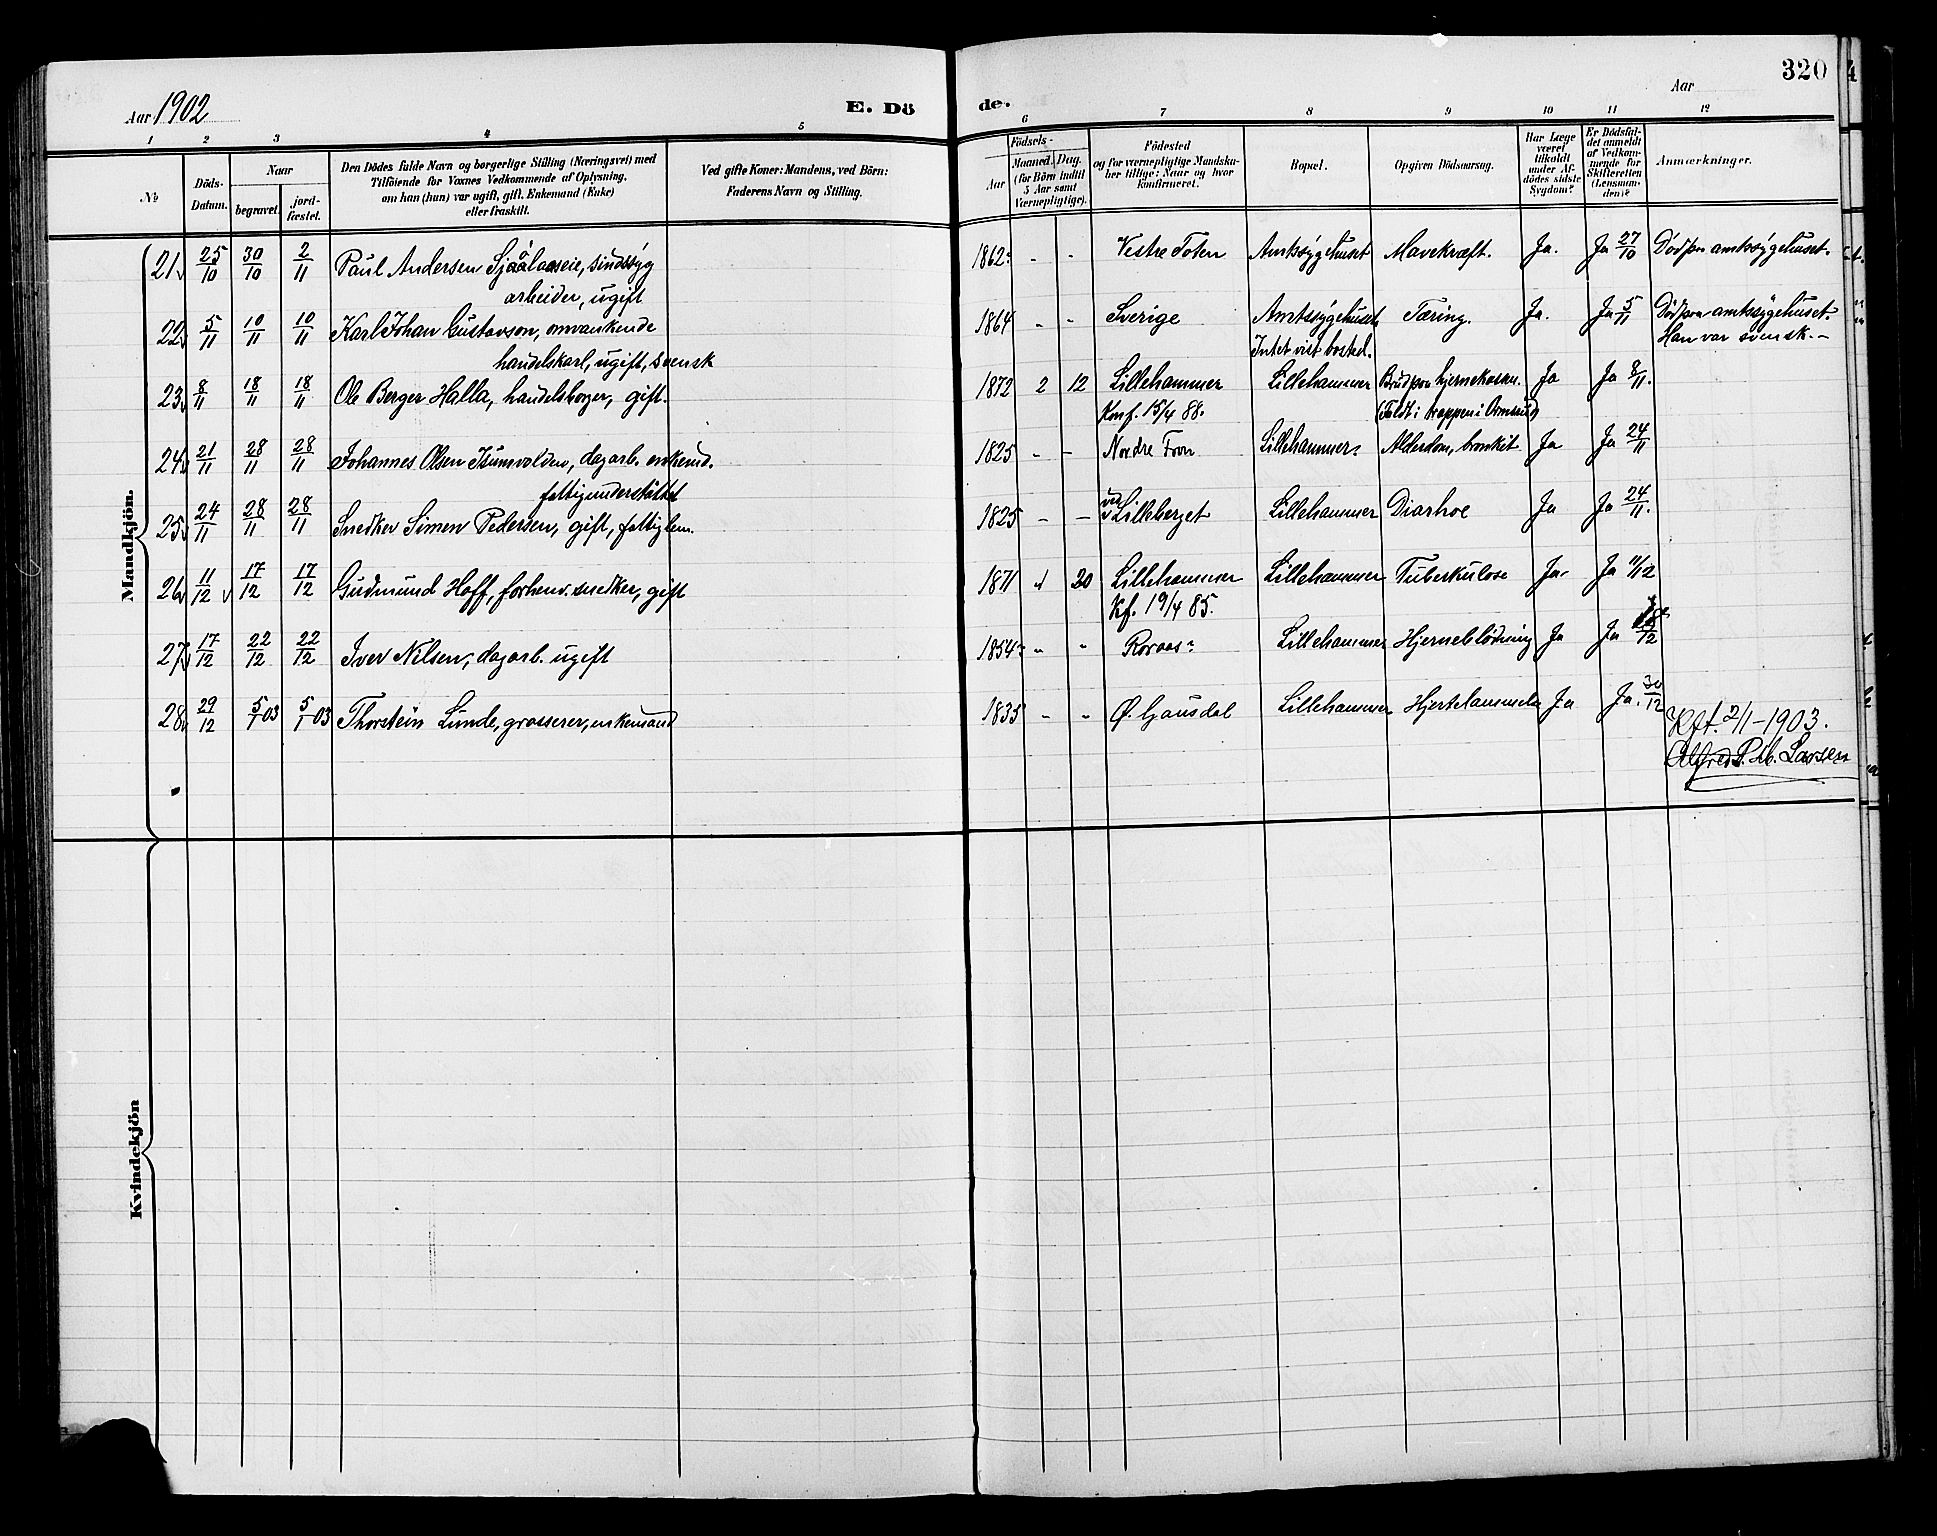 320
Aar 1902
E. Dö
de.
Aar
1 2 3 4 5 6 7 8 9 10 11 12
No
Döds-Datum.
Naar
begravet.
jord-fæstet.
Den Dödes fulde Navn og borgerlige Stilling (Næringsvei) med
Tilföiende for Voxnes Vedkommende af Oplysning,
om han (hun) var ugift, gift, Enkemand (Enke)
eller fraskilt.
Ved gifte Koner: Mandens, ved Börn:
Faderens Navn og Stilling.
Födsels-
Aar
Maaned. Dag.
(for Börn indtil
5 Aar samt
Værnepligtige).
Födested
og for værnepligtige Mandska-
ber tillige: Naar og hvor
konfirmeret.
Bopæl.
Opgiven Dödsaarsag.
Har Læge
været
tilkaldt
under Af-
dödes sidste
Sygdom?
Er Dödsfal-
det anmeldt
af Vedkom-
mende for
Skifteretten
(Lensman-
den)?
Anmærkninger.
Mandkjön.
21 25/10 30/10 2/11 Paul Andersen Sjaalaaseie, sindssyg 1862 - - Vestre Toten Amtssygehuset Mavekræft. Ja. Ja 27/10 Död paa amtssygehuset.
arbeider, ugift
22 5/11 10/11 10/11 Karl Johan Gustavson, omvankende 1864 - - Sverige Amtssygehuset Tæring. Ja. Ja 5/11 Död paa amtssygehuset.
handelskarl, ugift, svensk Intet vist bosted. Han var svensk.-
23 8/11 18/11 18/11 Ole Berger Halla, handelsborger, gift. 1872 2 12 Lillehammer Lillehammer Brud paa hjernekassen. Ja Ja 8/11.
Konf. 15/4 88. (Faldt i trappen i Ormsrud)
24 21/11 28/11 28/11 Johannes Olsen Isumvolden, dagarb. enkemd. 1825 - - Nordre Fron Lillehammer Alderdom, bronkit Ja Ja 24/11
fattigunderstöttet
25 24/11 28/11 28/11 Snedker Simen Pedersen, gift, fattiglem. 1825 - - ved Lilleberget Lillehammer Diarhoe Ja Ja 24/11.
26 11/12 17/12 17/12 Gudmund Hoff, forhenv. snedker, gift 1871 1 20 Lillehammer Lillehammer Tuberkulose Ja Ja 11/12
Kf. 19/4 85.
27 17/12 22/12 22/12 Iver Nilsen, dagarb. ugift 1854 - - Roraas Lillehammer Hjerneblödning Ja Ja
28 29/12 5/1 03 5/1 03 Thorstein Lunde, grosserer, enkemand 1835 - - Ø. Gausdal Lillehammer Hjertelammelse Ja Ja. 30/12
Kft. 2/1-1903.
Alfred P. Larsen
Kvindekjön